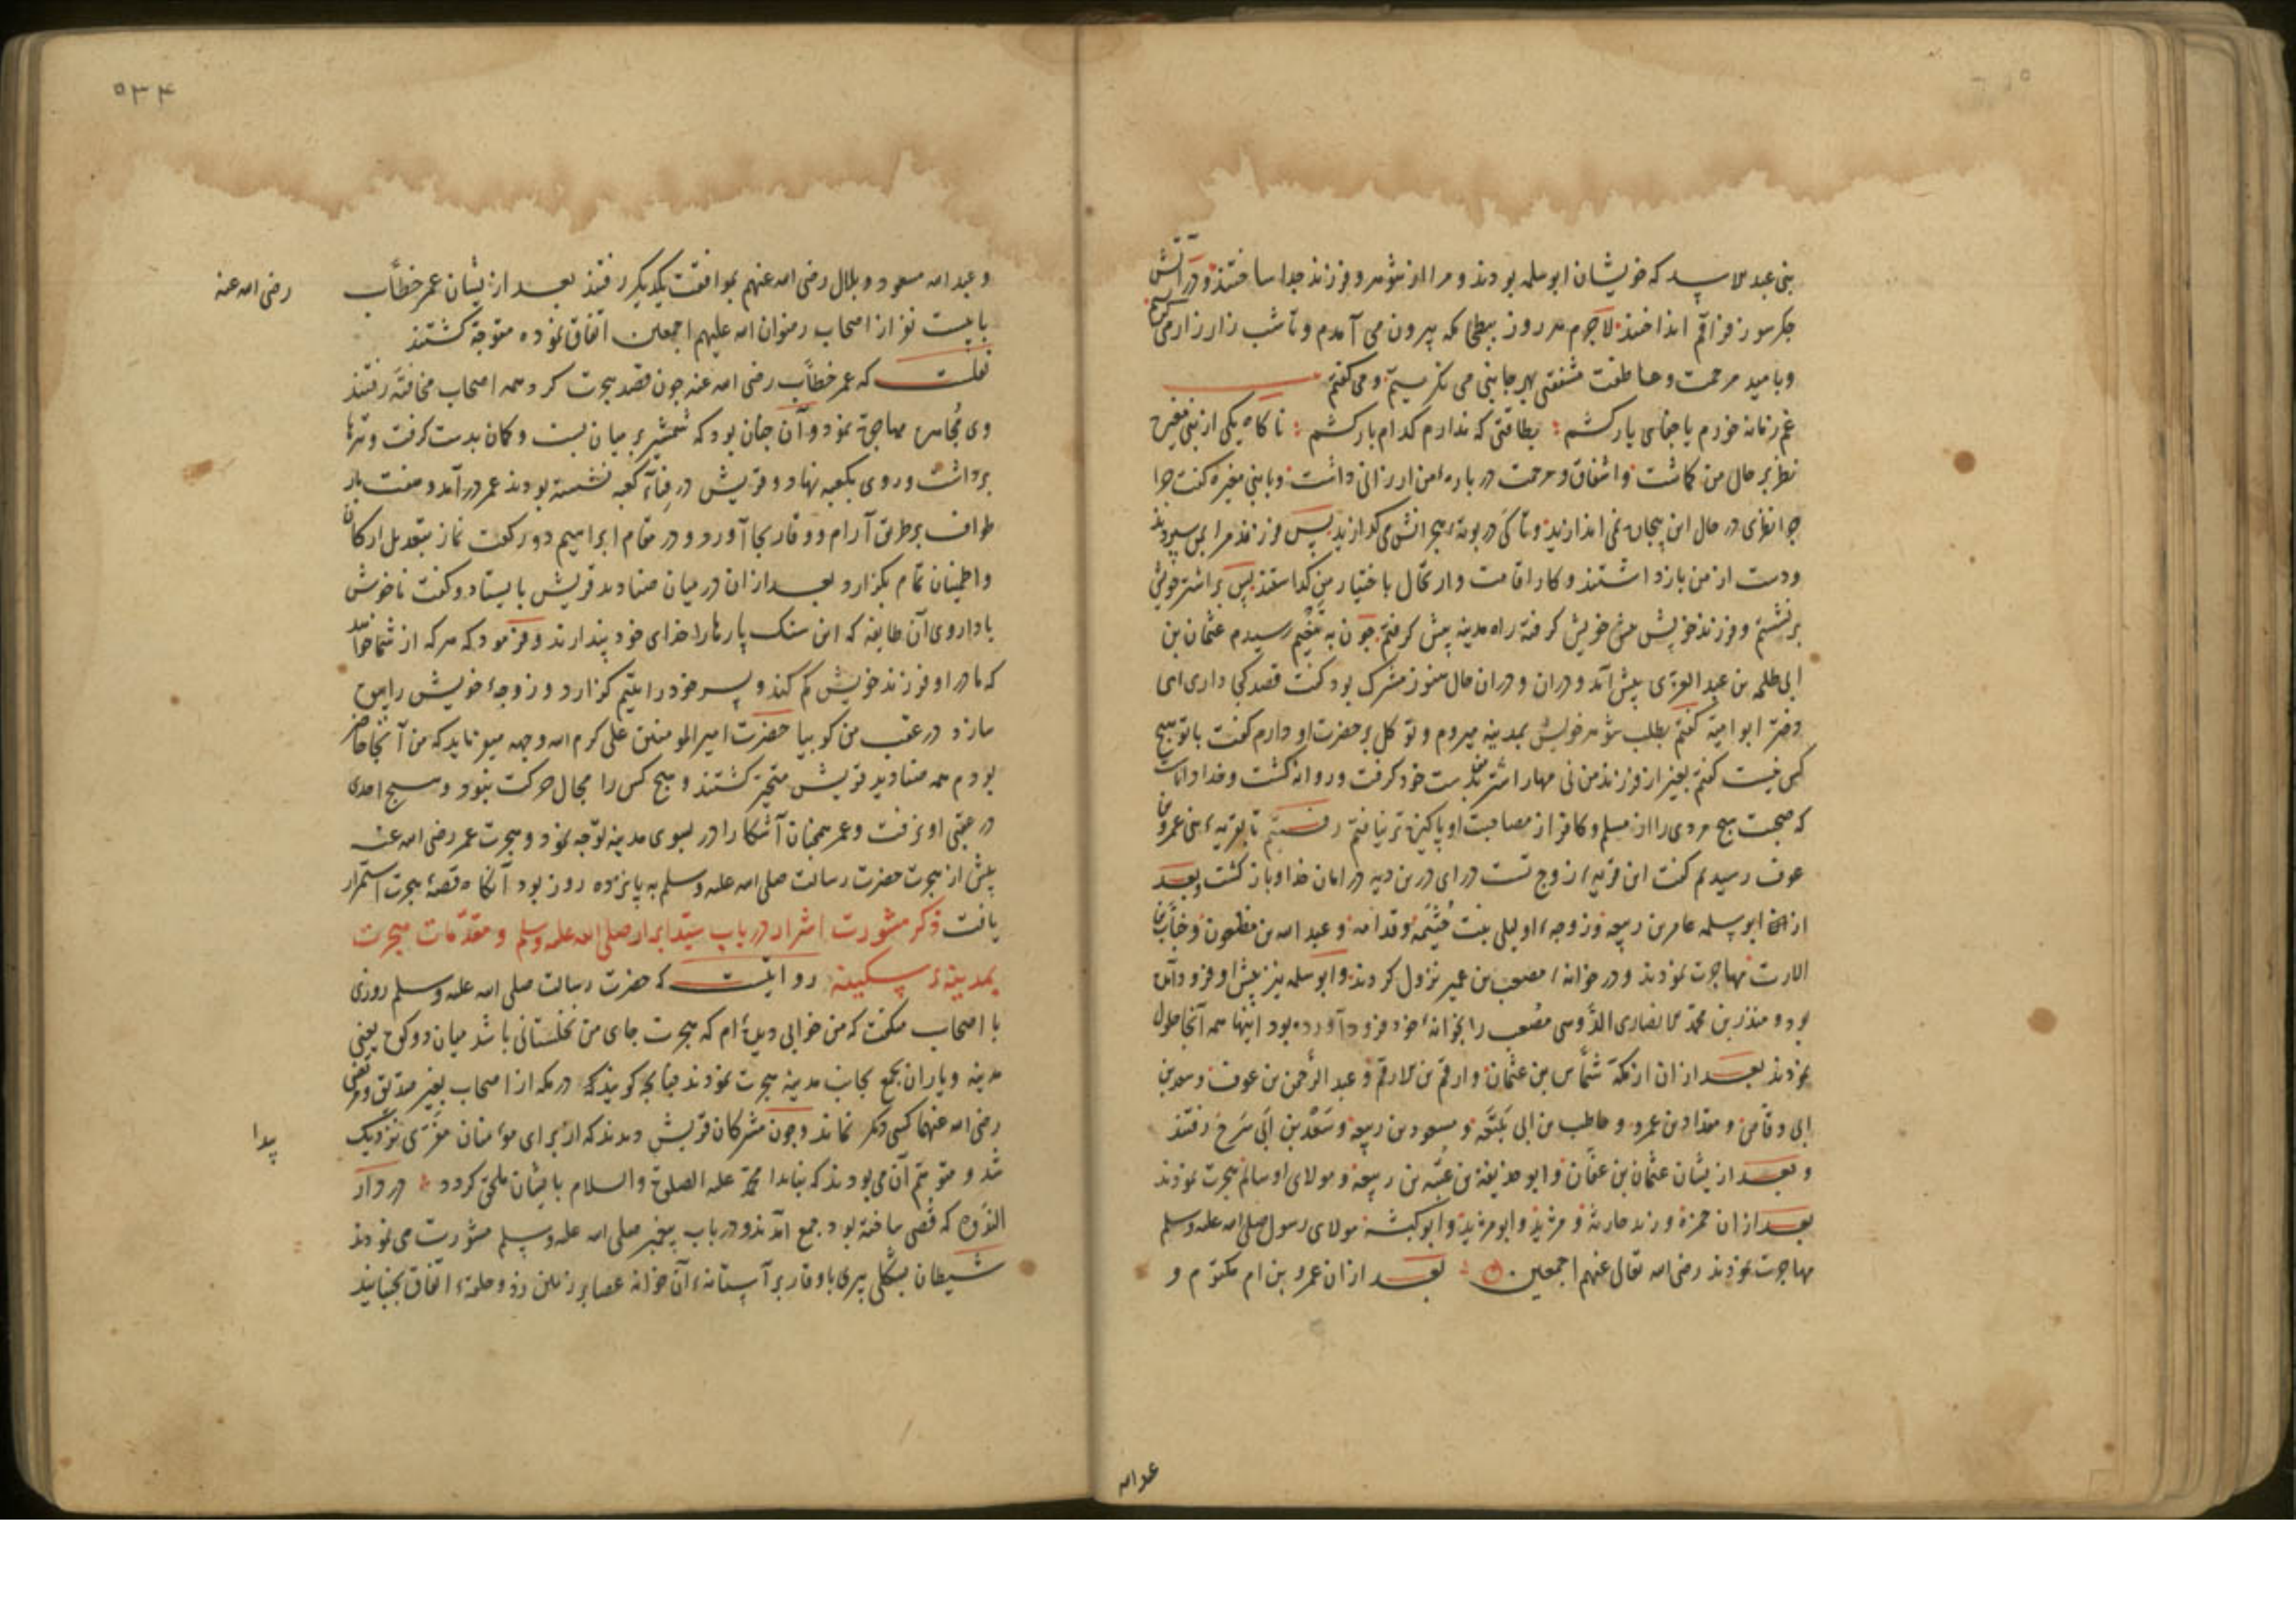 بنی عبد الاسد که خویشان ابو سلمه بودند و مرا از شوهر و فرزند جدا ساختند و در آتش
جگرسوز فراقم انداختند لاجرم هر روز ببطحا مکه بیرون می آمدم و تا شب زار زار می گریستم
و بامید مرحمت و عاطفت مشفقی بهر جانبی می نگریستم و می گفتم
غم زمانه خورم یا جفای یار کشم بطاقتی که ندارم کدام بار کشم ناگاه یکی از بنی مغیره
نظر بر حال من گماشت و اشفاق و مرحمت در باره من ارزانی داشت و با بنی مغیره گفت چرا
نظری در حال این بیچاره نمی اندازید و تا کی در بوته هجرانش می گدازید پس فرزند مرا بمن سپردند
و دست از من بازداشتند و کار اقامت و ارتحال باختیار من گذاشتند پس بر اشتر خویش
برنشستم و فرزند خویش پیش خویش گرفته راه مدینه پیش گرفتم چون به تنعیم رسیدم عثمان بن
ابی طلحه بن عبد العزی پیش آمد و در ان حال هنوز مشرک بود گفت قصد کجا داری ای
دختر ابو امیه گفتم بطلب شوهر خویش بمدینه میروم و توکل بر حضرت او دارم گفت با تو هیچ
کسی نیست گفتم بغیر از فرزند من نی مهار اشتر بدست خود گرفت و روانه گشت و خدا داناست
که صحبت هیچ مردی را از مسلم و کافر از مصاحبت او پاکیزه تر نیافتم رفتیم تا بقریه بنی عمرو بن
عوف رسیدیم گفت این قریه زوج تست درای درین دیه در امان خدا و باز گشت و بعد
از ان ابو سلمه عامر بن ربیعه و زوجه او لیلی بنت خیثمه و قدامه و عبد الله بن مظعون و خباب بن
الارت مهاجرت نمودند و در خانه مصعب بن عمیر نزول کردند و ابو سلمه نیز پیش او فرود آمده
بود و منذر بن محمد الانصاری الاوسی مصعب را بخانه خود فرود آورده بود اینها همه آنجا حلول
نمودند بعد از ان از مکه شماس بن عثمان و ارقم بن الارقم و عبد الرحمن بن عوف و سعد بن
ابی وقاص و مقداد بن عمرو و حاطب بن ابی بلتعه و مسعود بن ربیعه و سعد بن ابی سرح رفتند
و بعد ازیشان عثمان بن عفان و ابو حذیفه بن عتبه بن ربیعه و مولای او سالم هجرت نمودند
بعد از ان حمزه و زید حارثه و مرثد و ابو مرثد و ابو کبشه مولای رسول صلی الله علیه و سلم
مهاجرت نمودند رضی الله تعالی عنهم اجمعین بعد از ان عمرو بن ام مکتوم و
عبد الله
۵۳۴
و عبد الله مسعود و بلال رضی الله عنهم بموافقت یکدیگر رفتند بعد ازیشان عمر خطاب
رضی الله عنه
با بیست نفر از اصحاب رضوان الله علیهم اجمعین اتفاق نموده متوجه گشتند
نقلست که عمر خطاب رضی الله عنه چون قصد هجرت کرد همه اصحاب مخافته رفتند
وی مجاهره مهاجرة نمود و آن چنان بود که شمشیر بر میان بست و کمان بدست گرفت و تیرها
برداشت و روی بکعبه نهاد و قریش در فناء کعبه نشسته بودند عمر در آمد و هفت بار
طواف بر طریق آرام و وقار بجا آورد و در مقام ابراهیم دو رکعت نماز بتعدیل ارکان
و اطمینان تمام بگزارد بعد از ان در میان صنادید قریش بایستاد و گفت ناخوش
باد ا روی آن طایفه که این سنگ پارها را خدای خود پندارند و فرمود که هر که از شما خواهد
که مادر او فرزند خویش گم کند و پسر خود را یتیم گزارد و زوجه خویش را بیوه
سازد در عقب من گو بیا حضرت امیر المومنین علی کرم الله وجهه میفرماید که من آنجا حاضر
بودم همه صنادید قریش متحیر گشتند و هیچ کس را مجال حرکت نبود و هیچ احدی
در عقب او نرفت و عمر همچنان آشکارا در بسوی مدینه توجه نمود و هجرت عمر رضی الله عنه
پیش از هجرت حضرت رسالت صلی الله علیه و سلم به پانزده روز بود آنگاه قصه هجرت استمرار
یافت ذکر مشورت اشرار در باب سید ابرار صلی الله علیه وسلم و مقدمات هجرت
بمدینه سکینه روایتست که حضرت رسالت صلی الله علیه و سلم روزی
با اصحاب میگفت که من خوابی دیده ام که هجرت جای من نخلستانی باشد میان دو کوه یعنی
مدینه و یاران بجمع بجانب مدینه هجرت نمودند چنانچه گویند که در مکه از اصحاب بغیر صدیق و مرتضی
رضی الله عنهما کسی دگر نماند و چون مشرکان قریش دیدند که از برای مومنان مقری نزدیک
پیدا
شد و متوهم آن می بودند که مبادا محمد علیه الصلوة و السلام بایشان ملحق گردد در دار
الندوه که قصی ساخته بود جمع آمدند و در باب پیغمبر صلی الله علیه وسلم مشورت می نمودند
شیطان بشکل پیری با وقار بر آستانه آن خانه عصا بر زمین زد و حلقه اتفاق بجنبانید